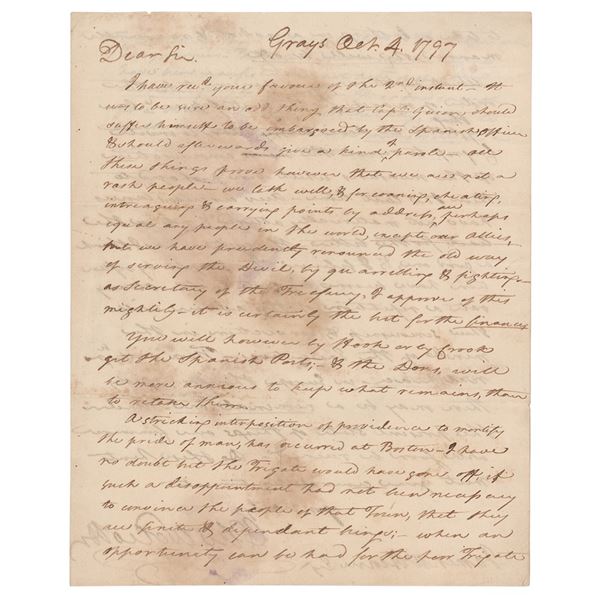 Grays Oct. 4. 1797
Dear Sir.
I have recd. your favour of the 2nd. instant - It
was to be sure an odd thing that Capt. Guion, should
suffer himself to be embargoed by the Spanish Officer
& should afterwards give a kind of parole - all
these things prove however that we are not a
rash people - we talk well, & for cunning, cheating,
intrigueing & carrying points by address, we perhaps
equal any people in the world, except our Allies,
but we have prudently renounced the old way
of serving the Devil, by quarrelling & fighting -
as Secretary of the Treasury, I approve of this
mightily - it is certainly the best for the finances
You will however by Hook or by Crook
get the Spanish Posts, - & the Dons, will
be more anxious to keep what remains, than
to retake them.
A striking interposition of providence to mortify
the pride of man, has occurred at Boston - I have
no doubt but the Frigate would have gone off, if
such a disappointment had not been necessary
to convince the people of that Town, that they
are finite & dependant beings; - when an
opportunity can be had for the poor Frigate